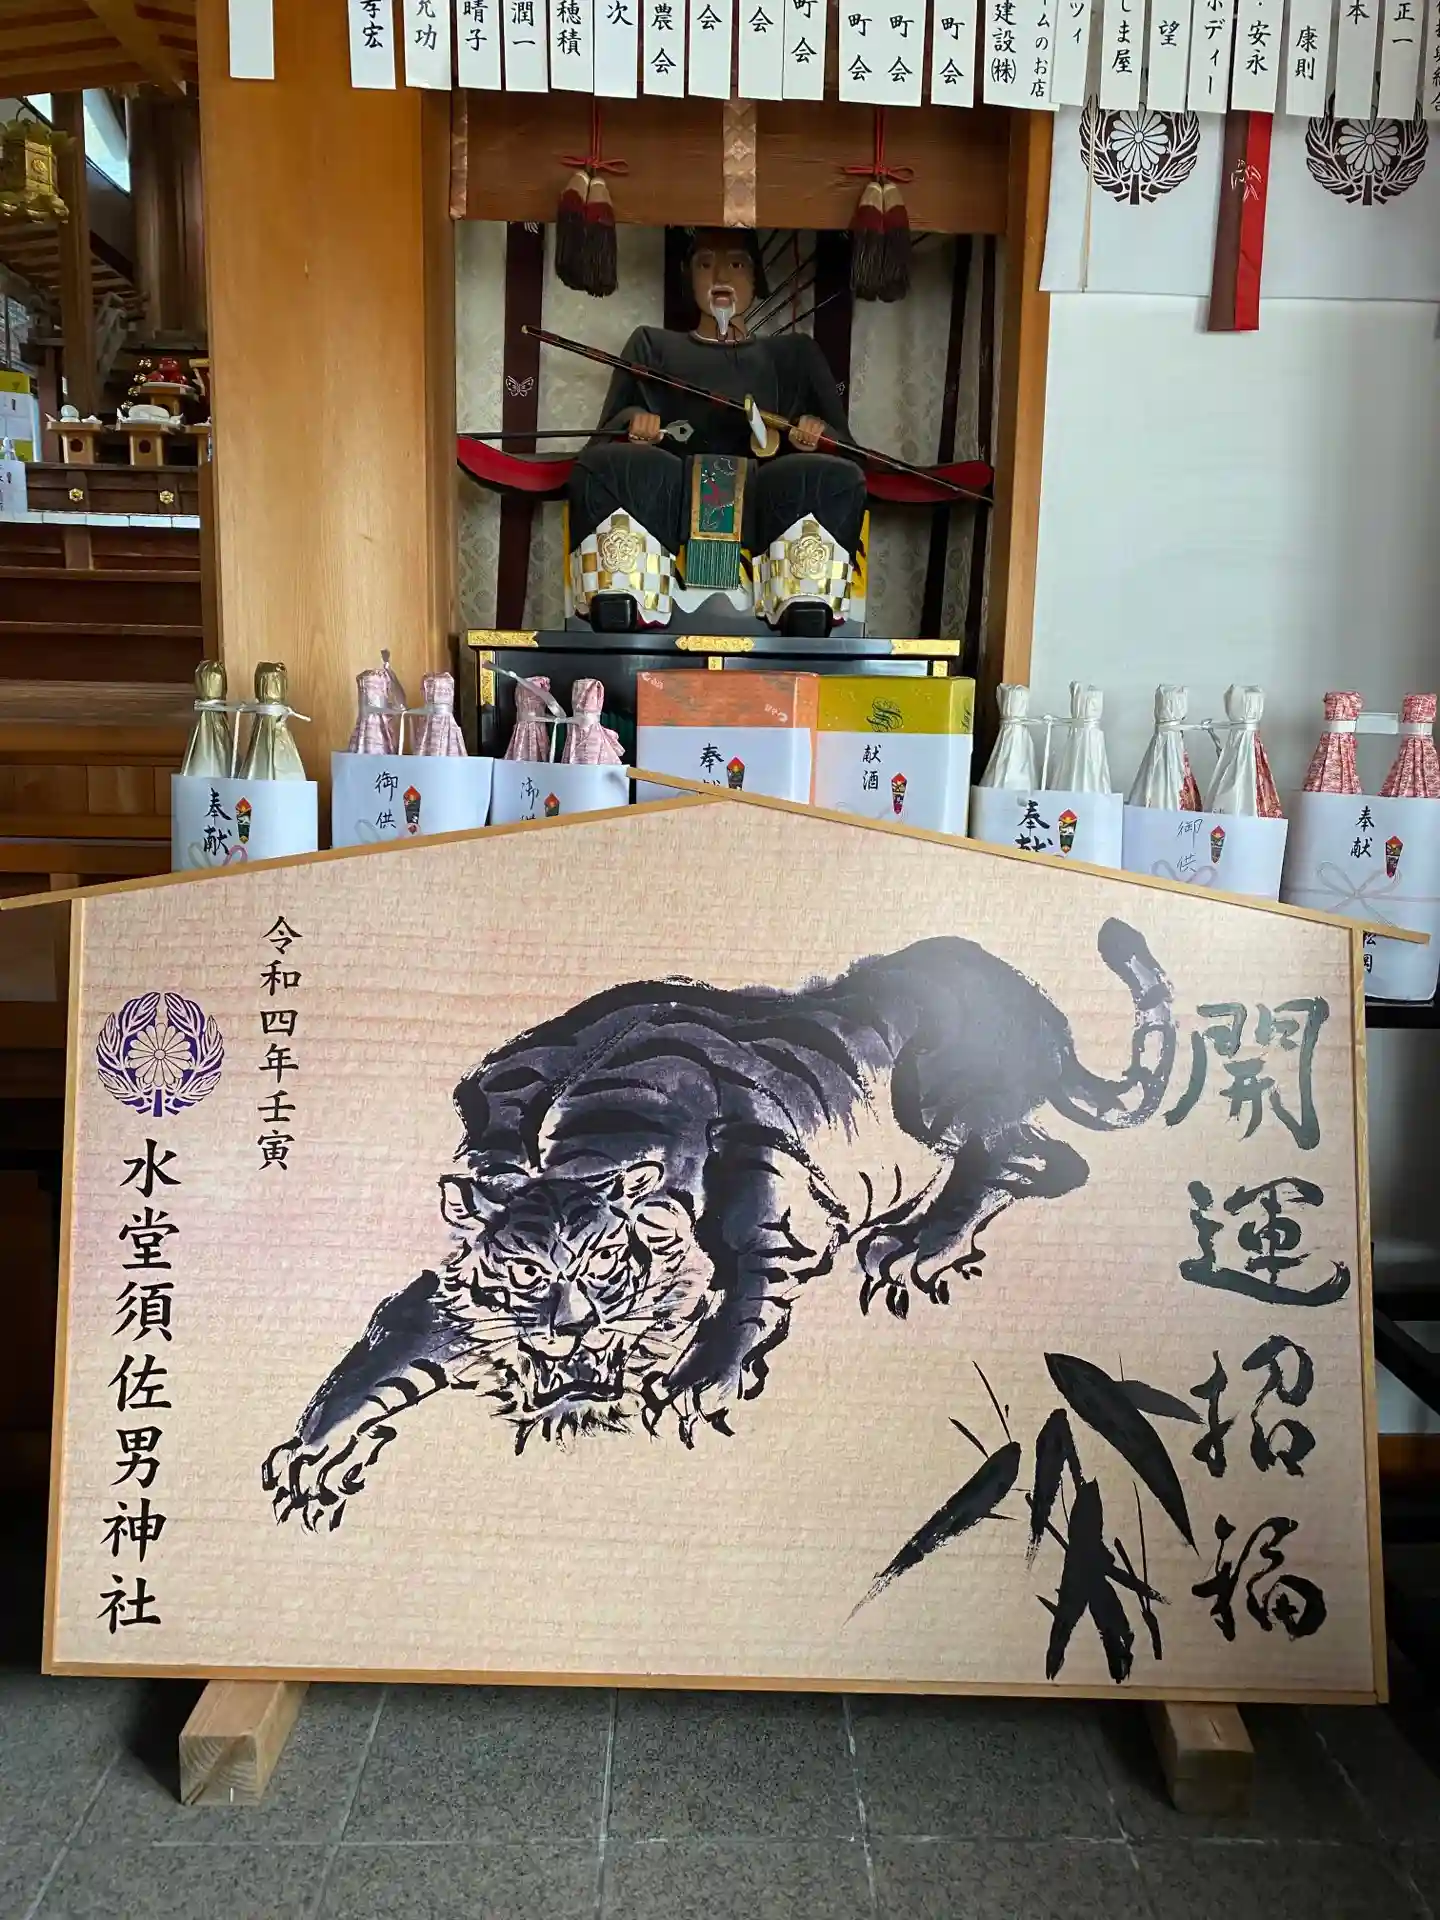 孝宏
允功
晴子
潤一
穂積
次
農会
会
会
町会
町会
町会
町会
建設㈱
ームのお店
ツィ
しま屋
望
ボディー
安永
康則
本
正一
奉献
御供
御供
奉献
献酒
奉献
御供
奉献
開運招福
令和四年壬寅
水堂須佐男神社